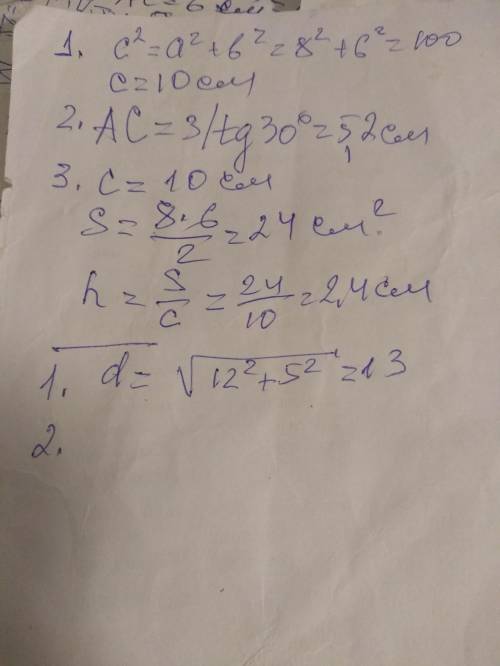 1. c²=a²+b²=8²+6²=100
c=10см
2. AC=3/tg30°=5,2см
3. c=10см
S=8·6/2=24 см²
h=S/c=24/10=2,4см
1. d=√12²+5²=13
2.